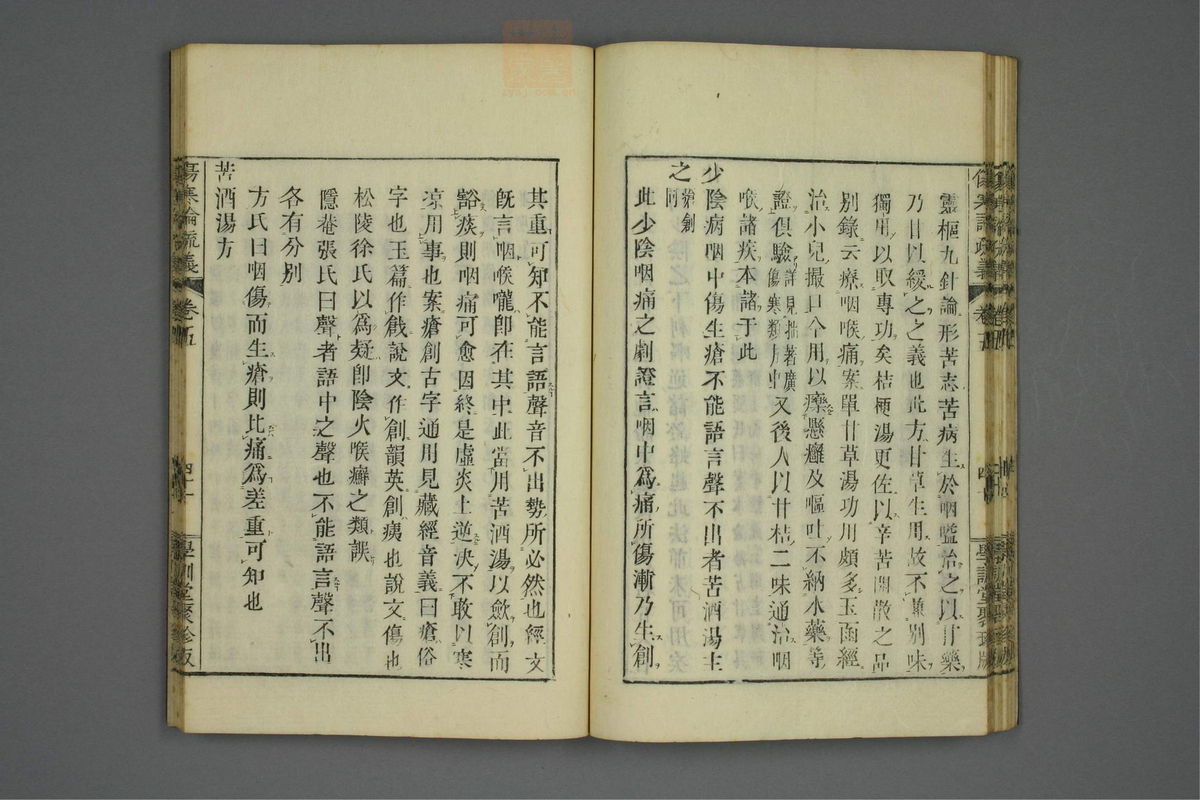 靈樞九針論形苦志苦病生於咽嗌治之以甘藥
乃甘以緩之之義也此方甘草生用故不兼別味
獨用以取專功矣桔梗湯更佐以辛苦開散之品
別錄云療咽喉痛案單甘草湯功用頗多玉函經
治小兒撮口全用以療懸癰及嘔吐不納水藥等
證俱驗詳見拙著廣傷寒類方中又後人以甘桔二味通治咽
喉諸疾本諸于此
少陰病咽中傷生瘡不能語言聲不出者苦酒湯主
之瘡創同
此少陰咽痛之劇證言咽中爲痛所傷漸乃生創
其重可知不能言語聲音不出勢所必然也經文
既言咽喉嚨即在其中此當用苦酒湯以斂創而
豁痰則咽痛可愈因終是虛炎上逆決不敢以寒
凉用事也案瘡創古字通用見藏經音義曰瘡俗
字也玉篇作戧說文作創韻英創痍也說文傷也
松陵徐氏以爲疑即陰火喉癬之類誤
隱菴張氏曰聲者語中之聲也不能語言聲不出
各有分别
方氏曰咽傷而生瘡則比痛爲差重可知也
苦酒湯方
傷寒論疏義
卷五
四十
學訓堂聚珍版